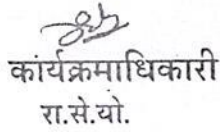 कार्यक्रमाधिकारी
रा.से.यो.